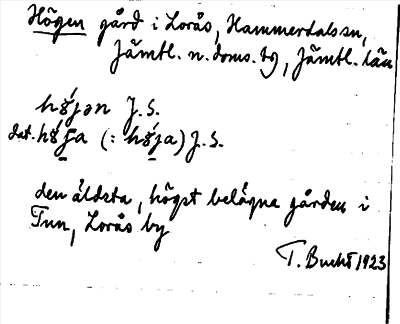 Högen gård i Lorås, Hammerdals sn,
Jämtl. n. doms. tg, Jämtl. län
högən J.S.
dat. hö́ga (: hö́ga) J.S.
den äldsta, högst belägna gården i
Tun, Lorås by
T. Bucht 1923